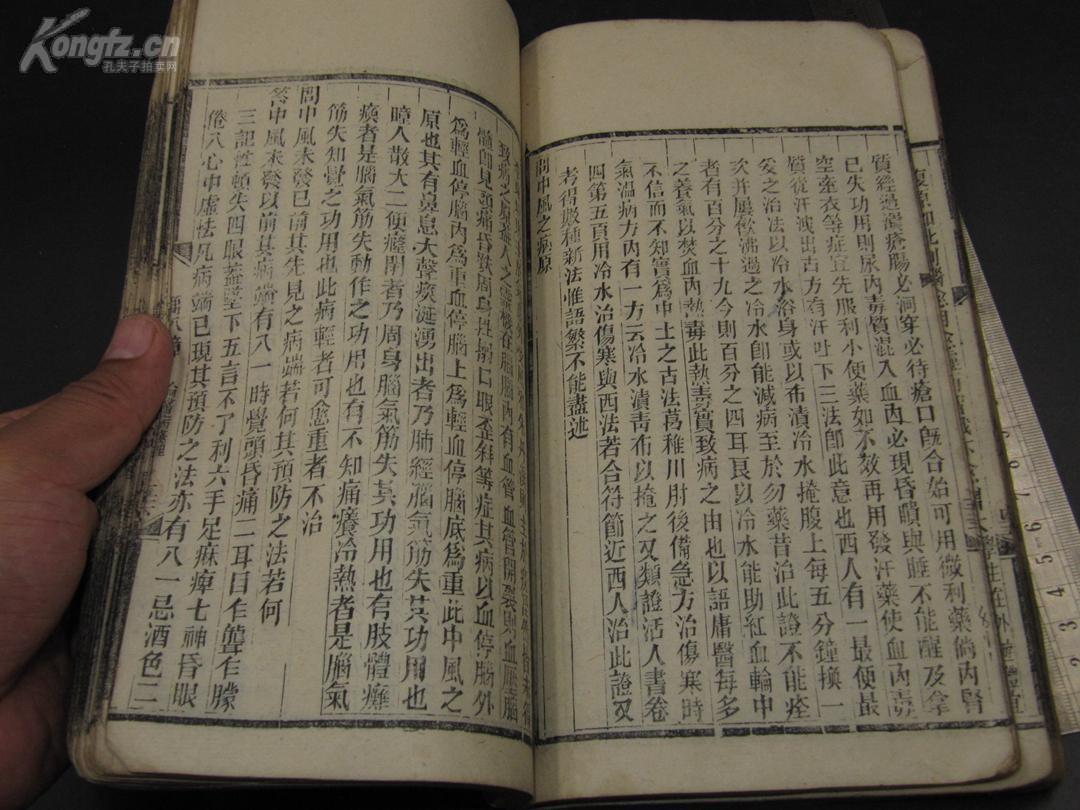 Kongfz.cn
孔夫子拍卖网
質經過潰瘡腸必洞穿必待瘡口旣合始可用微利藥倘内腎
已失功用則尿内毒質混入血内必現昏瞶與睡不能醒及拿
空牽衣等症宜先服利小便藥如不效再用發汗藥使血内毒
質從汗洩出古方有汗吐下三法卽此意也西人有一最便最
妥之治法以冷水浴身或以布漬冷水掩腹上每五分鐘換一
次并屢飲沸過之冷水卽能減病至於勿藥昔治此證不能痊
者有百分之十九今則百分之四耳艮以冷水能助紅血輪中
之養氣以焚血内熱毒此熱毒實致病之由也以語庸醫每多
不信而不知實爲中土之古法葛稚川肘後備急方治傷寒時
氣温病方内有一方云冷水漬靑布以掩之又類證活人書卷
四第五頁用冷水治傷寒與西法若合符節近西人治此證又
考得數種新法惟語繁不能盡述
問中風之病原
爲輕血停腦内爲重血停腦上爲輕血停腦底爲重此中風之
原也其有鼻息大聲痰涎湧出者乃肺經腦氣筋失其功用也
瞕人散大二便癃閉者乃周身腦氣筋失其功用也有肢體癱
瘓者是腦氣筋失動作之功用也有不知痛癢冷熱者是腦氣
筋失知覺之功用也此病輕者可愈重者不治
問中風未發已前其先見之病端若何其預防之法若何
答中風未發以前其病端有八一時覺頭昏痛二耳目乍聾乍矇
三記性頓失四眼蓋墜下五言不了利六手足麻痺七神昏眼
倦八心中虛怯凡病端已現其預防之法亦有八一忌酒色二